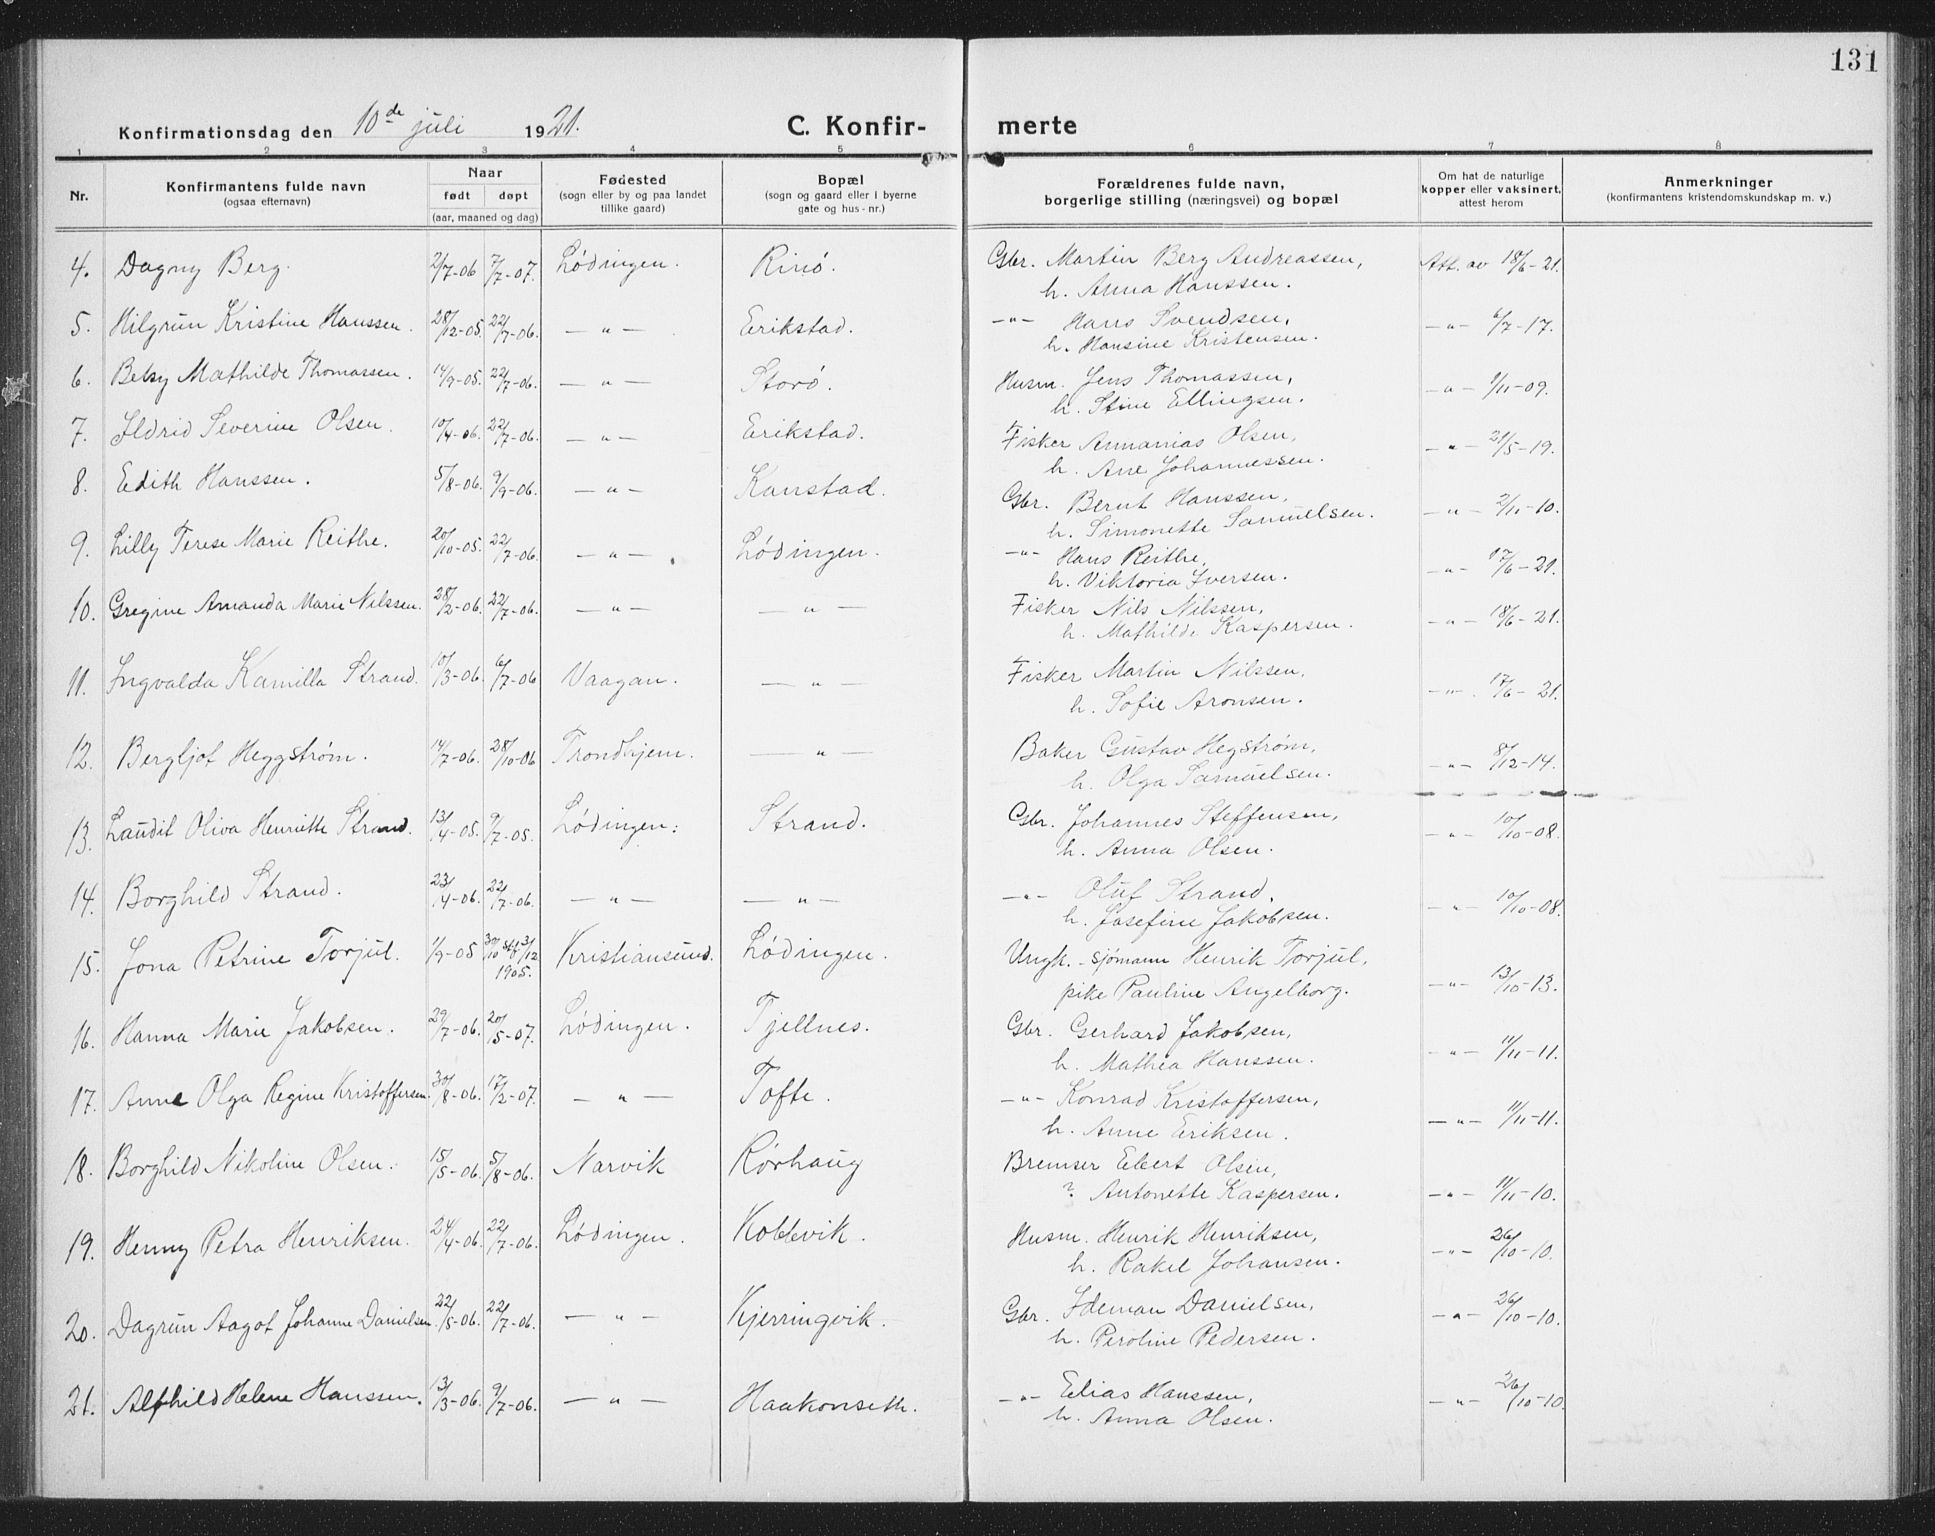 131
Konfirmationsdag den 10de juli 1921. C. Konfir- merte
1 2 3 4 5 6 7 8
Nr. Konfirmantens fulde navn (ogsaa efternavn) Naar født døpt (aar, maaned og dag) Fødested (sogn eller by og paa landet tillike gaard) Bopæl (sogn og gaard eller i byerne gate og hus-nr.) Forældrenes fulde navn, borgerlige stilling (næringsvei) og bopæl Om hat de naturlige kopper eller vaksinert, attest herom Anmerkninger (konfirmantens kristendomskundskap m. v.)
4. Dagny Berg. 2/7-06 7/7-07. Lødingen. Rinø. Gbr. Martin Berg Andreassen, Att. av 18/6-21.
h. Anna Hanssen.
5. Hilgrun Kristine Hanssen. 28/12-05. 22/7-06. -"- Erikstad. -"- Hans Svendsen, -"- 6/7-17.
h. Hansine Kristensen.
6. Betsy Mathilde Thomassen. 14/9-05. 22/7-06. -"- Storø. Husm. Jens Thomassen, -"- 1/11-09.
h. Stine Ellingsen.
7. Ildrid Severine Olsen. 10/4-06. 22/7-06. -"- Erikstad. Fisker Annanias Olsen, -"- 21/5-19.
h. Ane Johannessen.
8. Edith Hanssen. 5/8-06. 9/9-06. -"- Kanstad. Gbr. Bernt Hanssen, -"- 2/11-10.
h. Simonette Samuelsen.
9. Lilly Terese Marie Reithe. 20/10-05. 22/7-06. -"- Lødingen. -"- Hans Reithe, -"- 17/6-21.
h. Viktoria Iversen.
10. Gregine Amanda Marie Nilssen. 28/2-06. 22/7-06. -"- -"- Fisker Nils Nilssen, -"- 18/6-21.
h. Mathilde Kaspersen.
11. Ingvalda Kamilla Strand. 10/3-06. 6/7-06 Vaagan. -"- Fisker Martin Nilssen, -"- 17/6-21.
h. Sofie Aronsen.
12. Bergljot Heggstrøm. 14/7-06. 28/10-06 Trondhjem. -"- Baker Gustav Hegstrøm, -"- 8/12-14.
h. Olga Samuelsen.
13. Laudit Oliva Henriette Strand. 13/4-05. 9/7-05. Lødingen. Strand. Gbr. Johannes Steffensen, -"- 10/10-08.
h. Anna Olsen.
14. Borghild Strand. 23/4-06. 22/7-06. -"- -"- -"- Oluf Strand, -"- 10/10-08.
h. Josefine Jakobsen.
15. Jona Petrine Torjul. 1/9-05 30/10 stf. 3/12 1905. Kristiansund. Lødingen. Ungk.-sjømann Henrik Torjul, -"- 13/10-13.
pike Pauline Angelborg.
16. Hanna Marie Jakobsen. 29/7-06. 20/5-07. Lødingen. Tjellnes. Gbr. Gerhard Jakobsen, -"- 11/11-11.
h. Mathea Hanssen.
17. Anne Olga Regine Kristoffersen. 30/8-06. 17/2-07. -"- Tofte. -"- Konrad Kristoffersen, -"- 11/11-11.
h. Anne Eriksen.
18. Borghild Nikoline Olsen. 15/5-06. 5/8-06. Narvik Rørhaug Bremser Edert Olsen, -"- 11/11-10.
? Antonette Kaspersen.
19. Henny Petra Henriksen. 24/4-06. 22/7-06. Lødingen. Koldevik. Husm. Henrik Henriksen, -"- 26/10-10.
h. Rakel Johansen.
20. Dagrun Aagot Johanne Danielsen. 22/5-06. 22/7-06. -"- Kjerringvik. Gbr. Ideman Danielsen, -"- 26/10-10.
h. Peroline Pedersen.
21. Alfhild Helene Hanssen. 13/3-06. 9/7-06. -"- Haakonseth. -"- Elias Hanssen, -"- 26/10-10.
h. Anna Olsen.